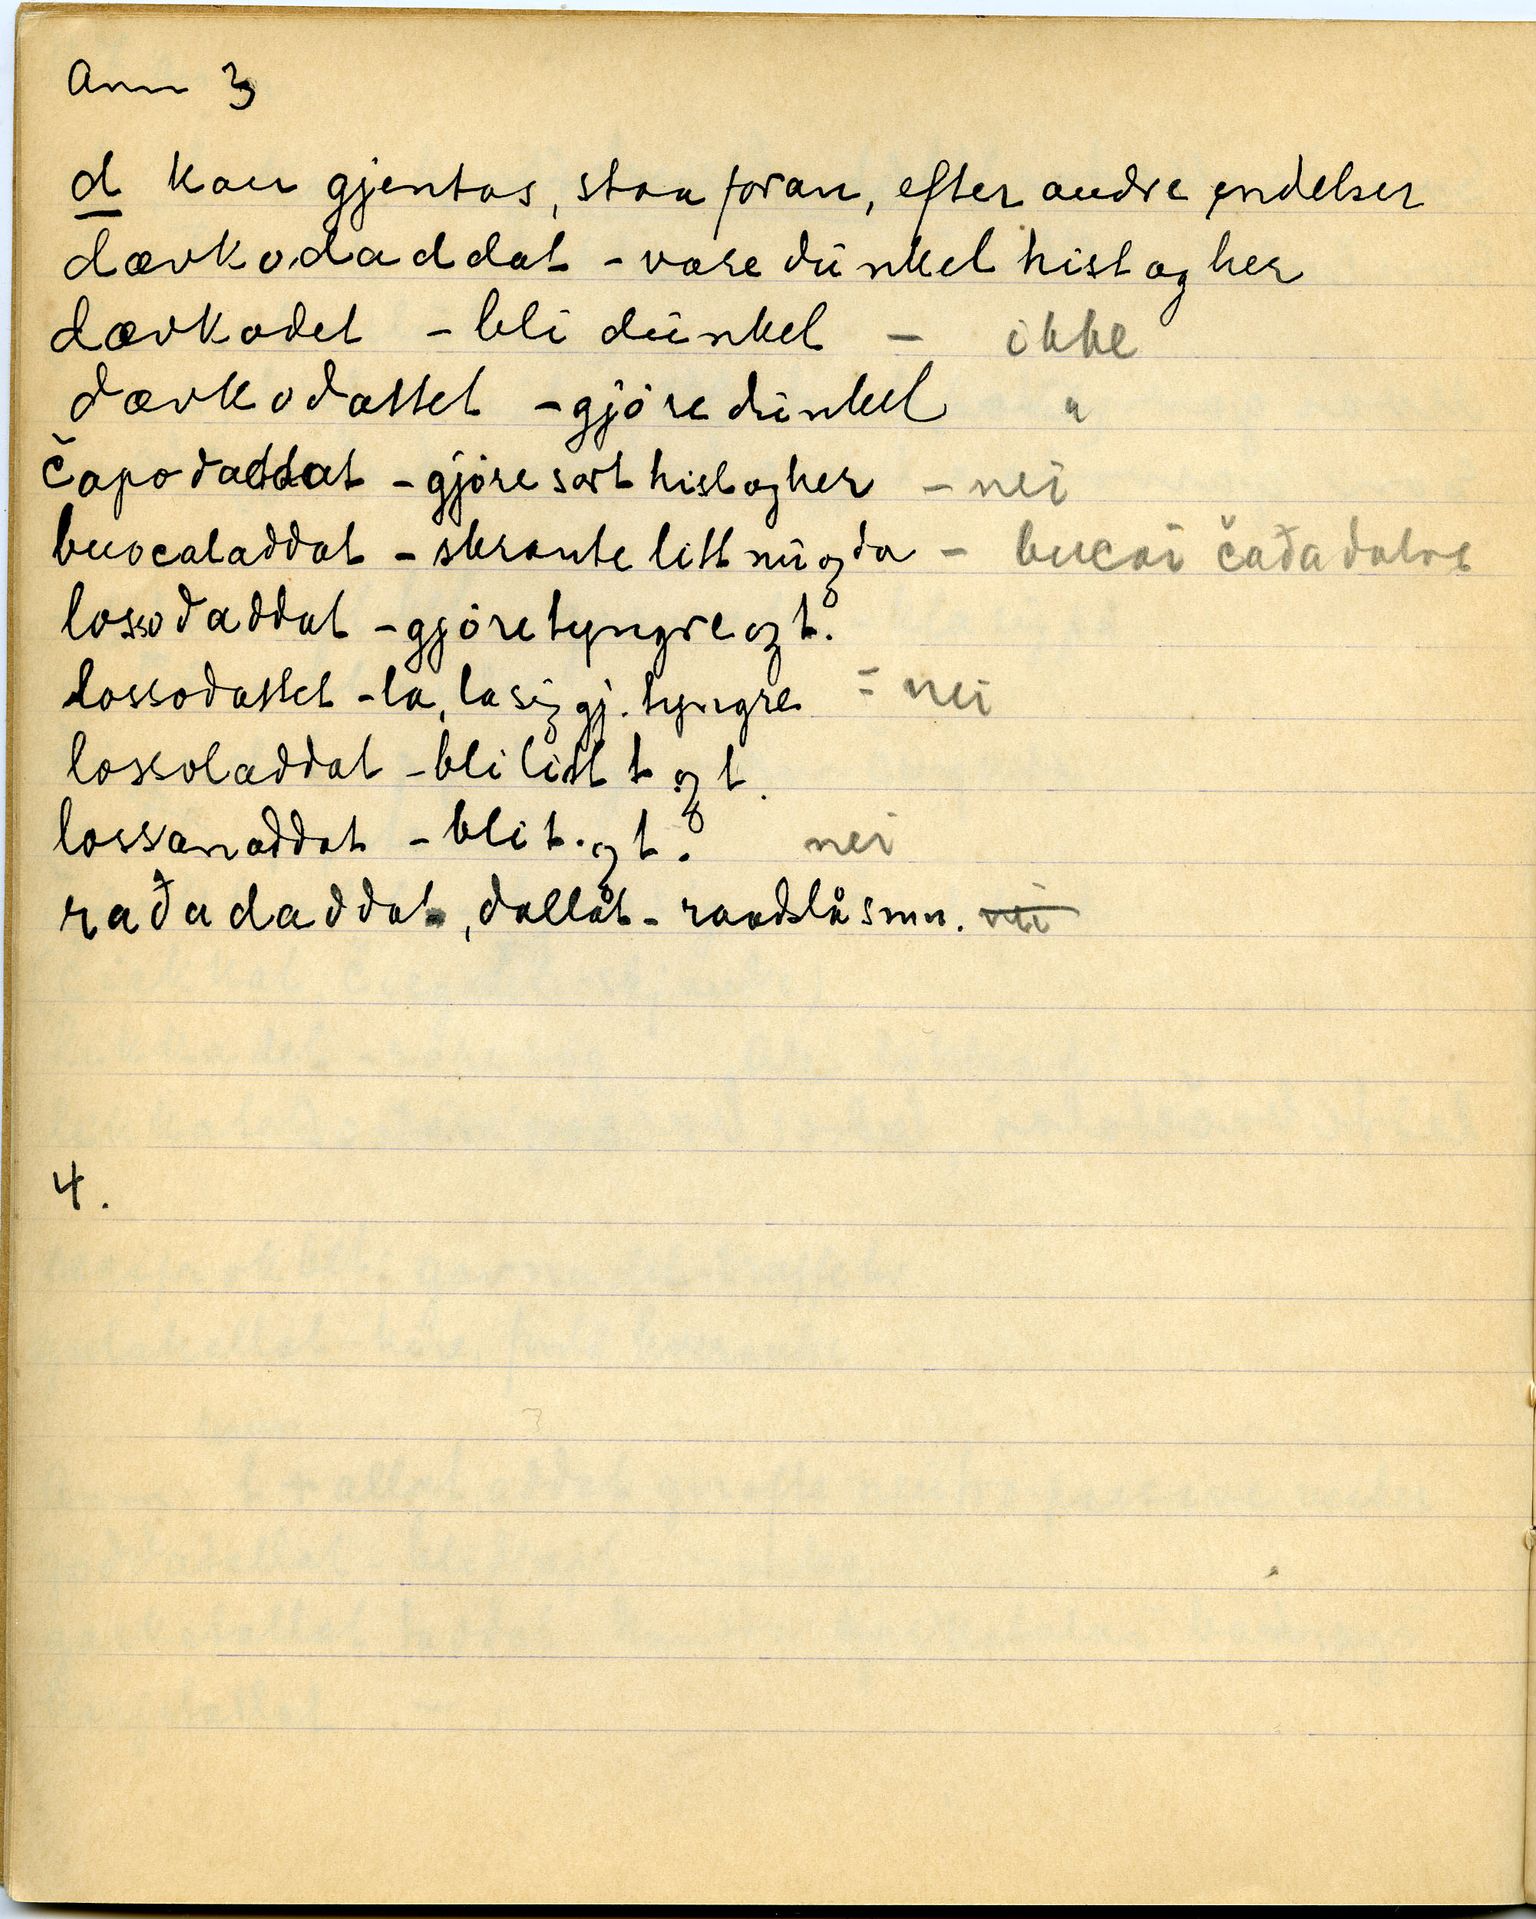 Anm 3
d kan gjentas, staa foran, efter andre endelser
dævkodaddat - være dunkel hist og her
dævkodet - bli dunkel - ikke
dævkodattet - gjöre dunkel "
čapodaddat - gjöre sort hist og her - nei
buocaladdat - skrante litt nu og da - bucai čađadalat
lossodaddat - gjöre tyngre og t.
lossodattet - la, la sig gj. tyngre = nei
lossoladdat - bli litt t og t.
lossanaddat - bli t. og t. nei
rađadaddat, dallåt - raadslå smn. nei
4.